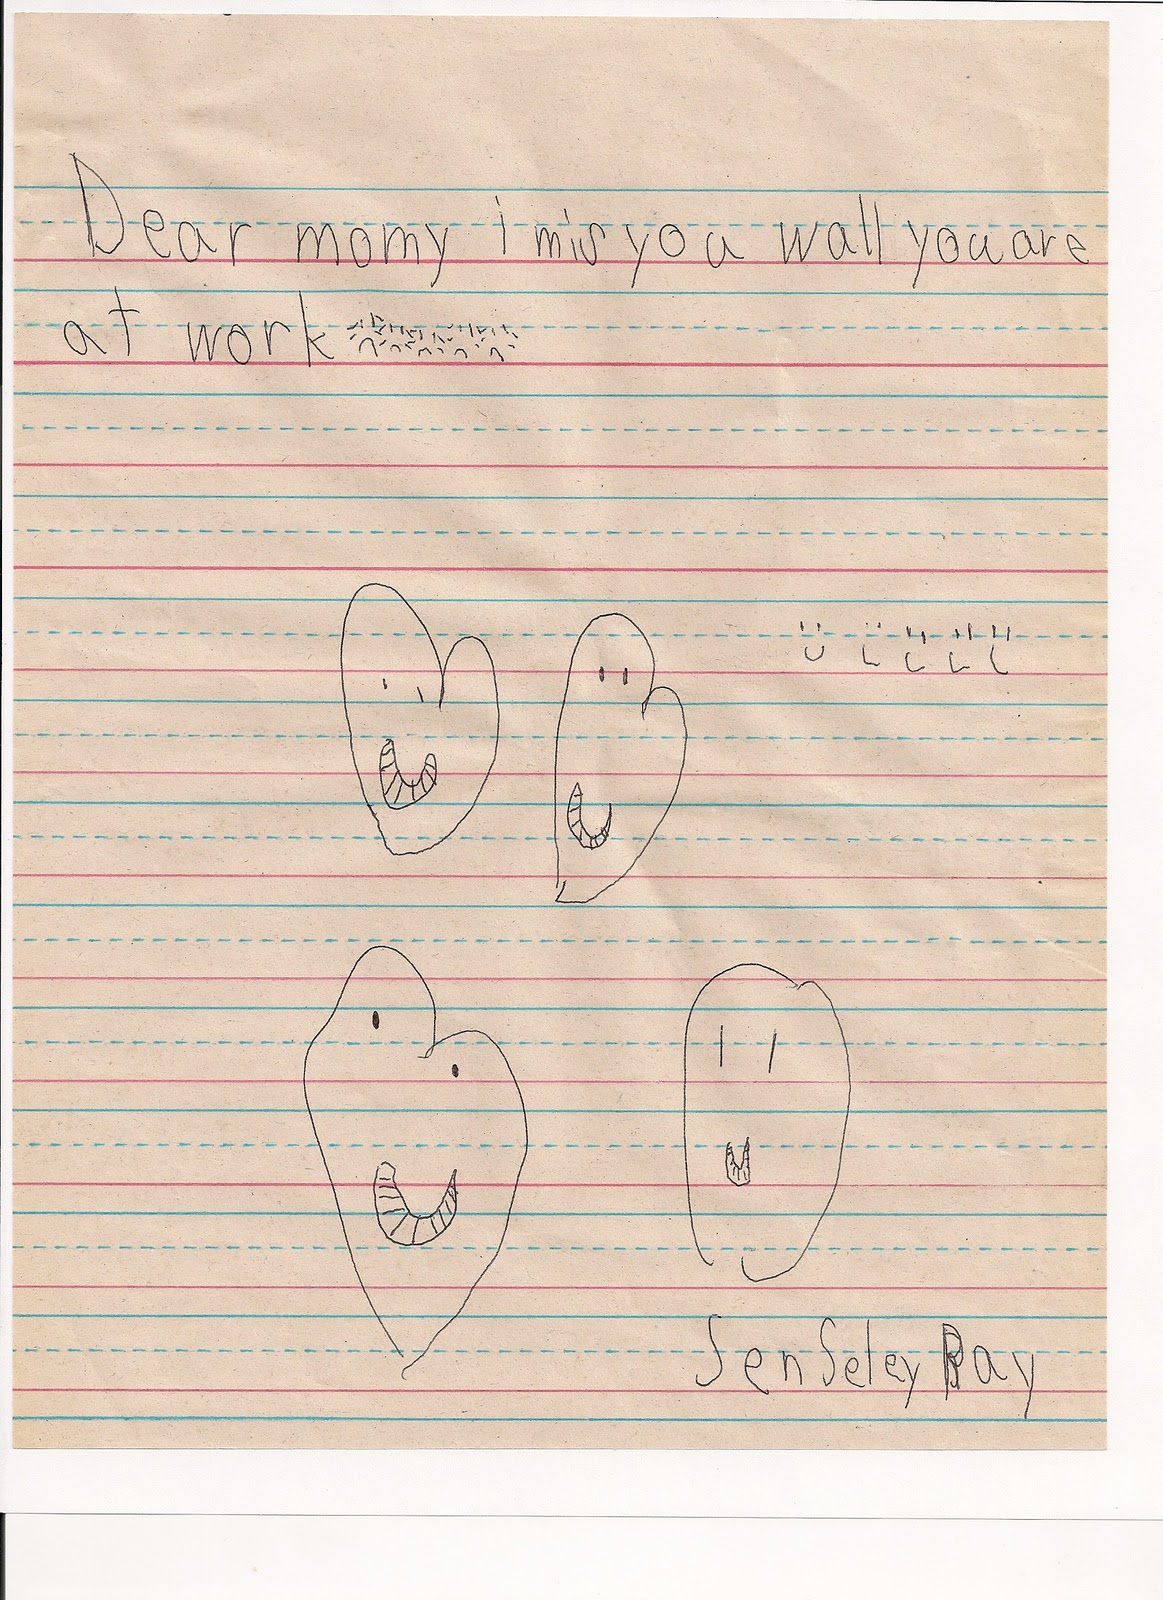 Dear momy i mis you wall you are
at work
SenSeley Ray